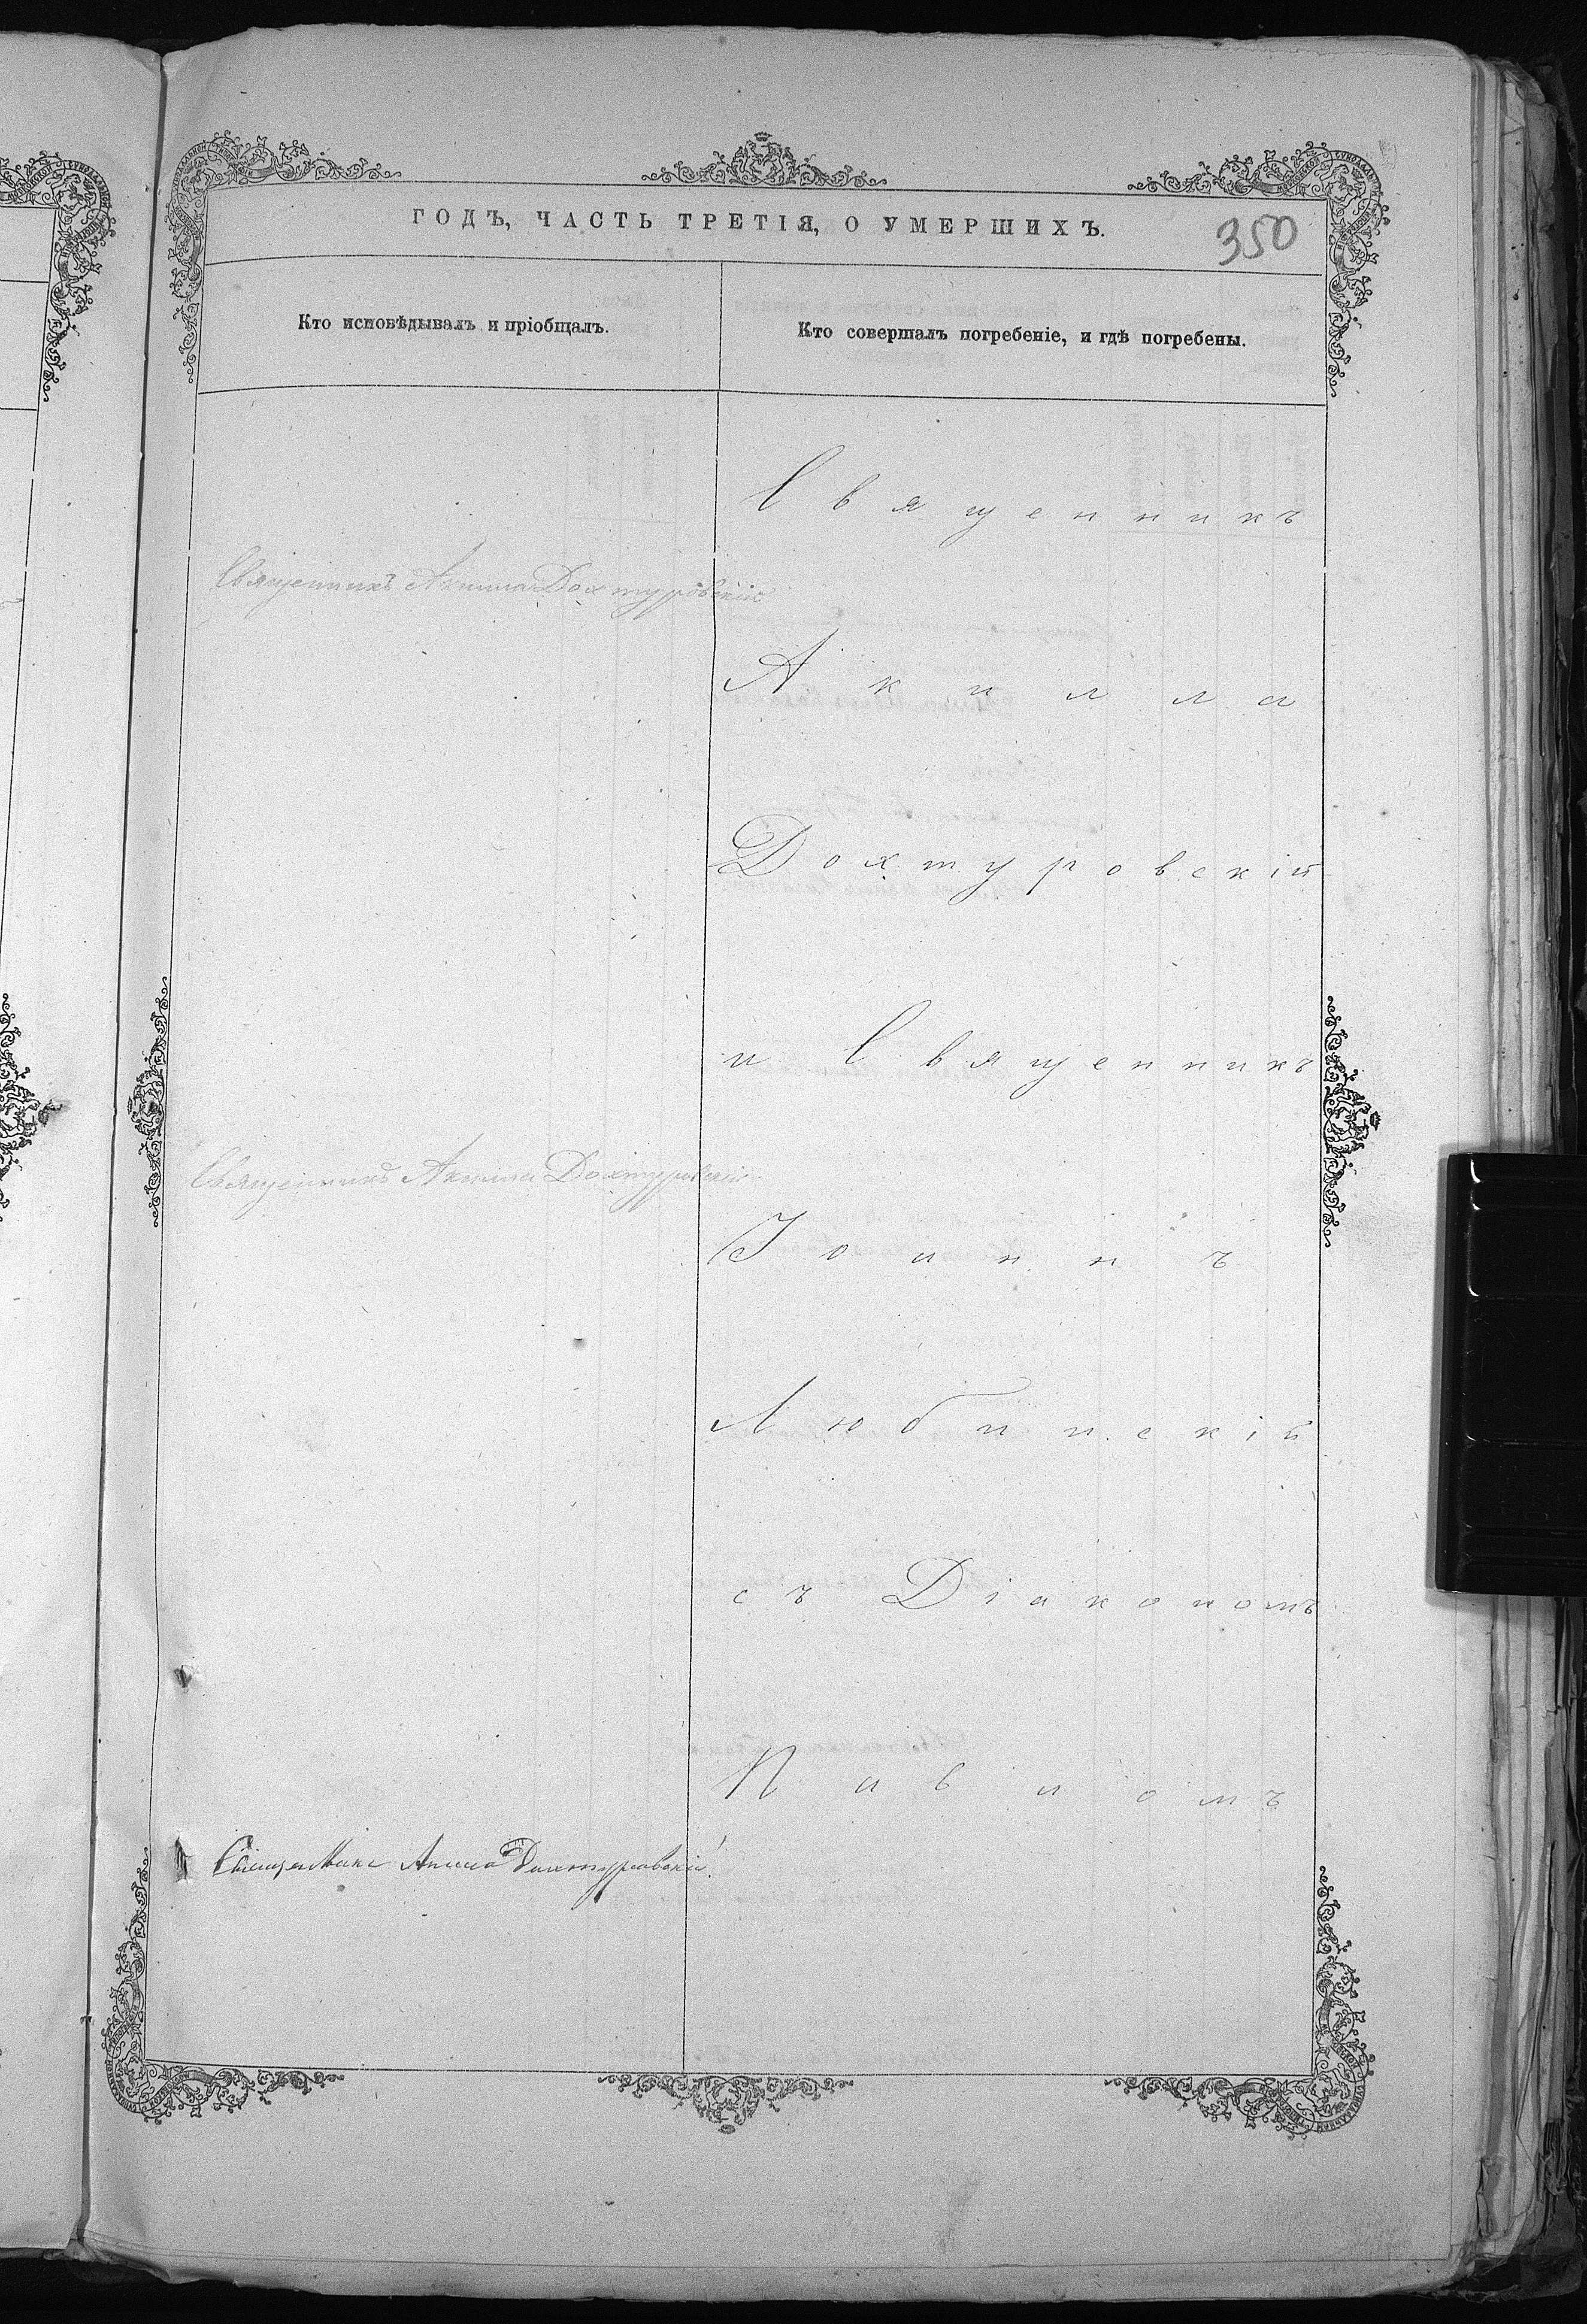 ГОДЪ, ЧАСТЬ ТРЕТІЯ, О УМЕРШИХЪ.
350
Кто исповѣдывалъ и пріобщалъ.
Кто совершалъ погребеніе, и гдѣ погребены.
Священникъ
Священникъ Акилла Дохтуровскій
Акилла
Дохтуровскій
и Священникъ
Священникъ Акилла Дохтуровскій
Іоаннъ
Любинскій
съ Діакономъ
Павломъ
Священникъ Акилла Дохтуровскій